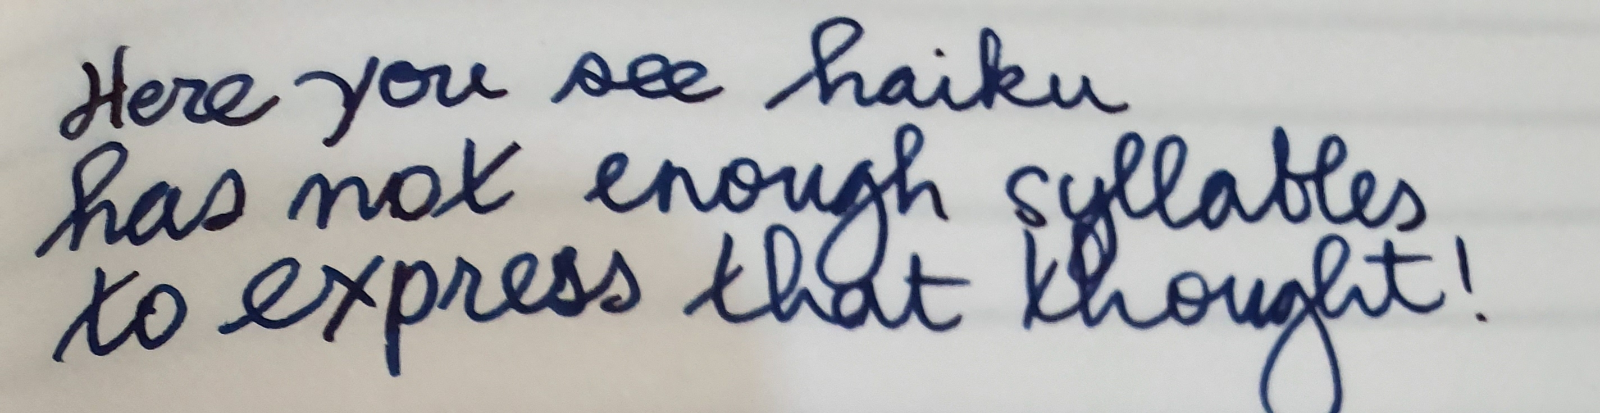 Here you see haiku
has not enough syllables
to express that thought!